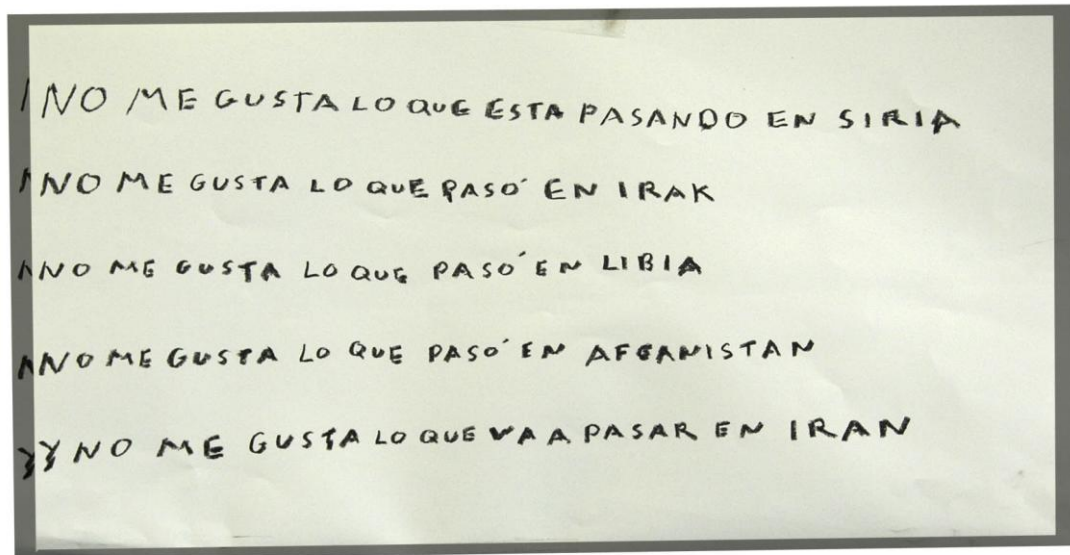 NO ME GUSTA LO QUE ESTA PASANDO EN SIRIA
NO ME GUSTA LO QUE PASÓ EN IRAK
NO ME GUSTA LO QUE PASÓ EN LIBIA
NO ME GUSTA LO QUE PASÓ EN AFGANISTAN
Y NO ME GUSTA LO QUE VA A PASAR EN IRAN